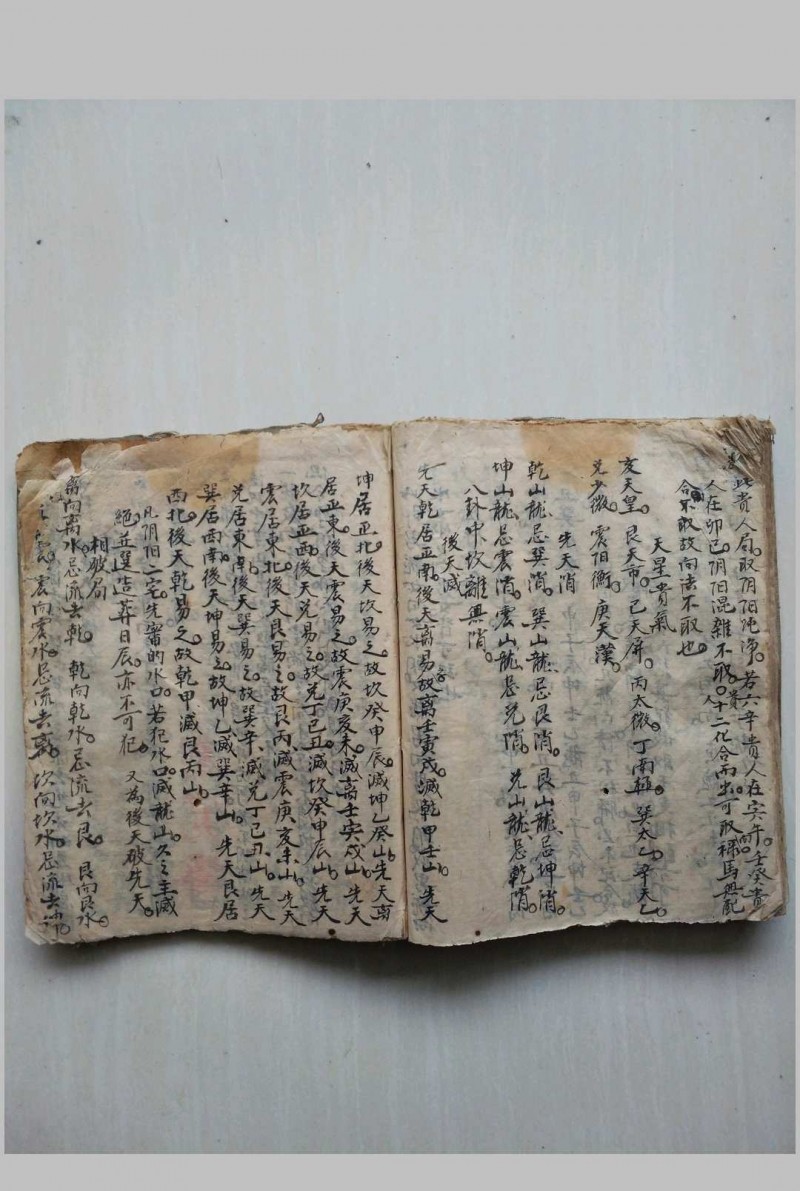 此貴人局。取阴阳純淨。若六辛貴人在寅午。壬癸貴
人在卯巳。阴阳混雜不取。貴人十二化合而出。可取祿馬無配
合不取。故向法不取也。
天星貴氣
亥天皇。艮天市。巳天屏。丙太微。丁南極。巽太乙。辛天乙。
兌少微。震阳衡。庚天漢。
先天消
乾山龍忌巽消。巽山龍忌艮消。艮山龍忌坤消。
坤山龍忌震消。震山龍忌兌消。兌山龍忌乾消。
八卦中坎離無消。
後天滅
先天乾居正南。後天离易之故离壬寅戌。滅乾甲壬山。先天
坤居正北後天坎易之。故坎癸申辰。滅坤乙癸山。先天离
居正東。後天震易之。故震庚亥未。滅离壬寅戌山。先天
坎居正西。後天兌易之。故兌丁巳丑。滅坎癸申辰山。先天
震居東北。後天艮易之。故艮丙。滅震庚亥未山。先天
兌居東南。後天巽易之。故巽辛。滅兌丁巳丑山。先天
巽居西南。後天坤易之。故坤乙。滅巽辛山。先天艮居
西北。後天乾易之。故乾甲滅艮丙山。
凡阴阳二宅。先審的水口。若犯水口滅龍山。久之主滅
絕。並選造葬日辰。亦不可犯。又為後天破先天。
相破局
离向离水忌流去乾。乾向乾水。忌流去艮。艮向艮水。
震向震水忌流去离。坎向坎水。忌流去